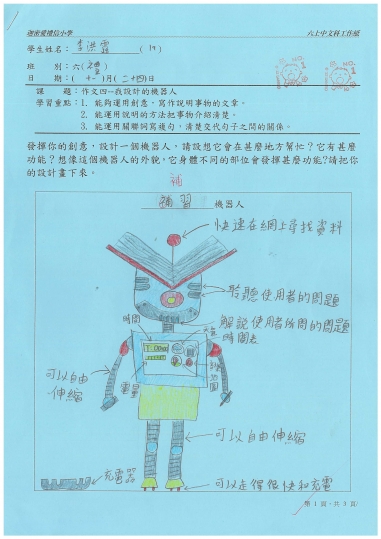 迦密愛禮信小學 六上中文科工作紙
學生姓名：李洪靈 (19)
班 別：六(禮)
日 期：(十一)月(二十四)日
課 題：作文四--我設計的機器人
學習重點：1. 能夠運用創意，寫作說明事物的文章。
2. 能運用說明的方法把事物介紹清楚。
3. 能運用關聯詞寫複句，清楚交代句子之間的關係。
發揮你的創意，設計一個機器人，請設想它會在甚麼地方幫忙？它有甚麼
功能？想像這個機器人的外貌，它身體不同的部位會發揮甚麼功能？請把你
的設計畫下來。
補
補習 機器人
快速在網上尋找資料
聆聽使用者的問題
時間
解說使用者所問的問題
時間表
電量
可以自由
伸縮
可以自由伸縮
充電器
可以走得很快和充電
第 1 頁，共 3 頁